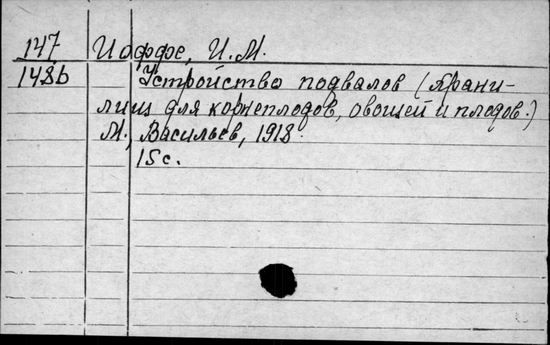 147 Иоффе, И. М.
148b Устройство подвалов (Храни-
лищ для корнеплодов, овощей и плодов.)
М., Васильев, 1918.
15с.